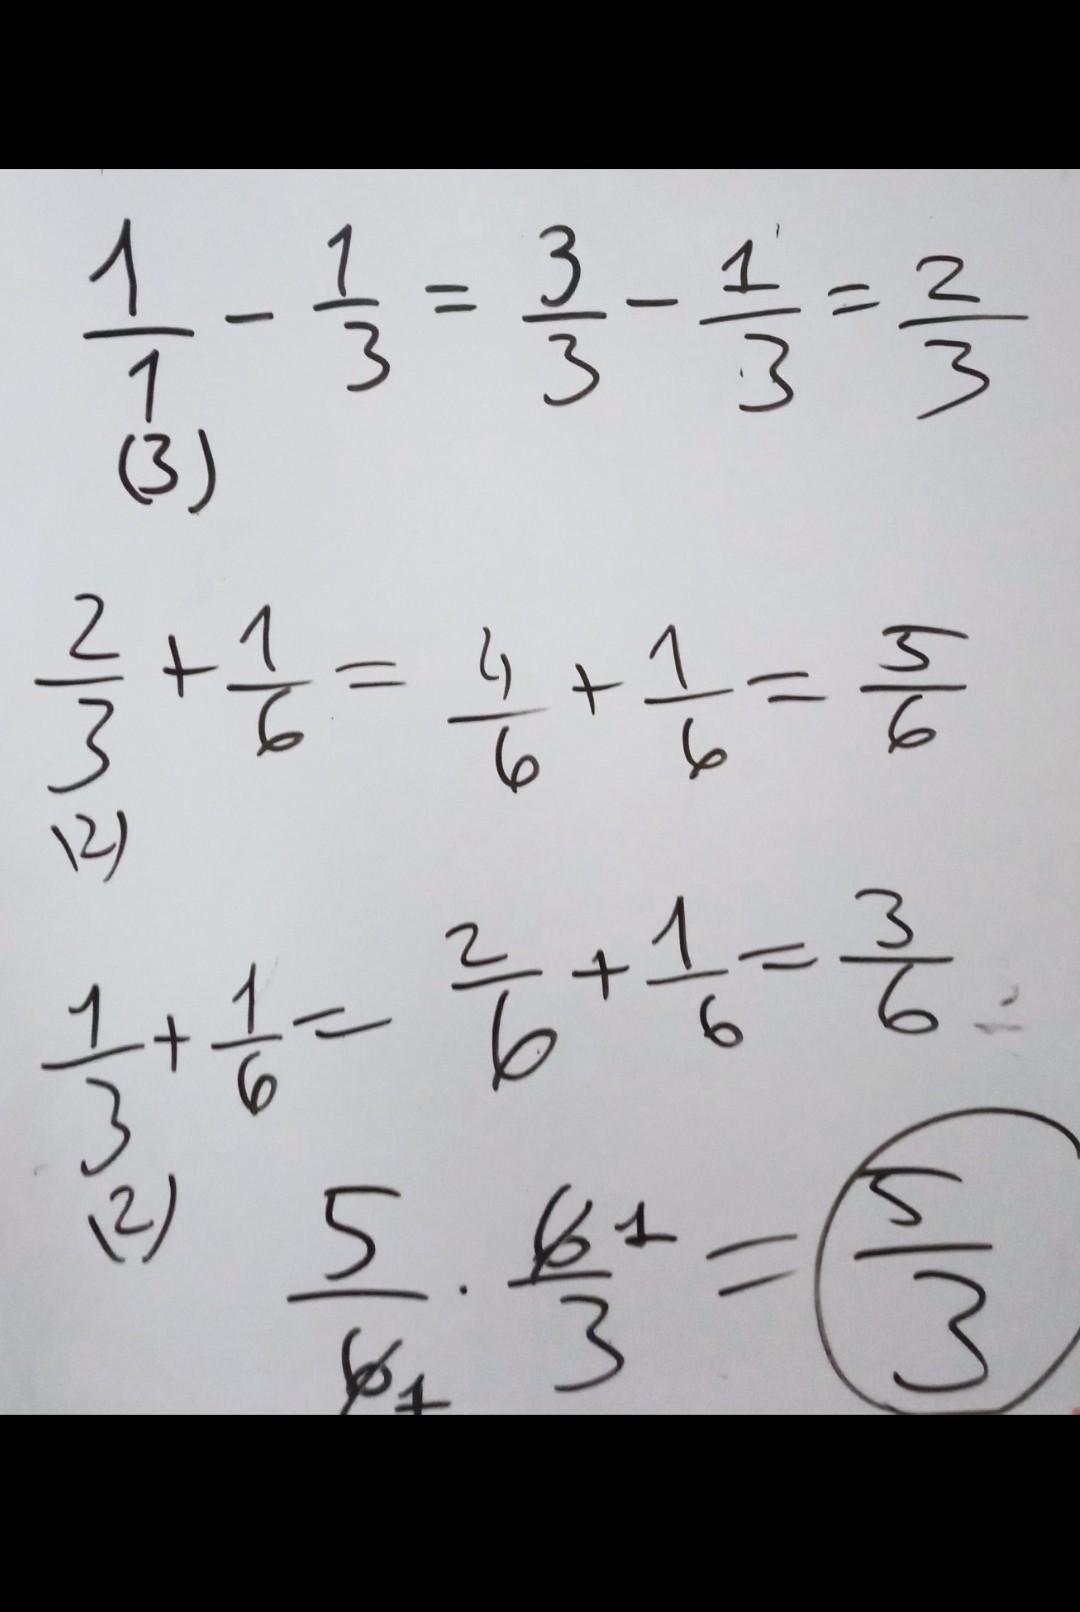 1/1 - 1/3 = 3/3 - 1/3 = 2/3
(3)
2/3 + 1/6 = 4/6 + 1/6 = 5/6
(2)
1/3 + 1/6 = 2/6 + 1/6 = 3/6
(2)
5/6 1 · 6 1/3 = 5/3